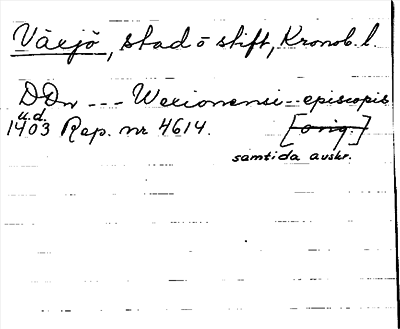 Växjö, stad o stift, Kronob. l.
DDn --- Wexionensi -- episcopis
u.d.
1403 Rep. nr 4614. [orig.]
samtida avskr.